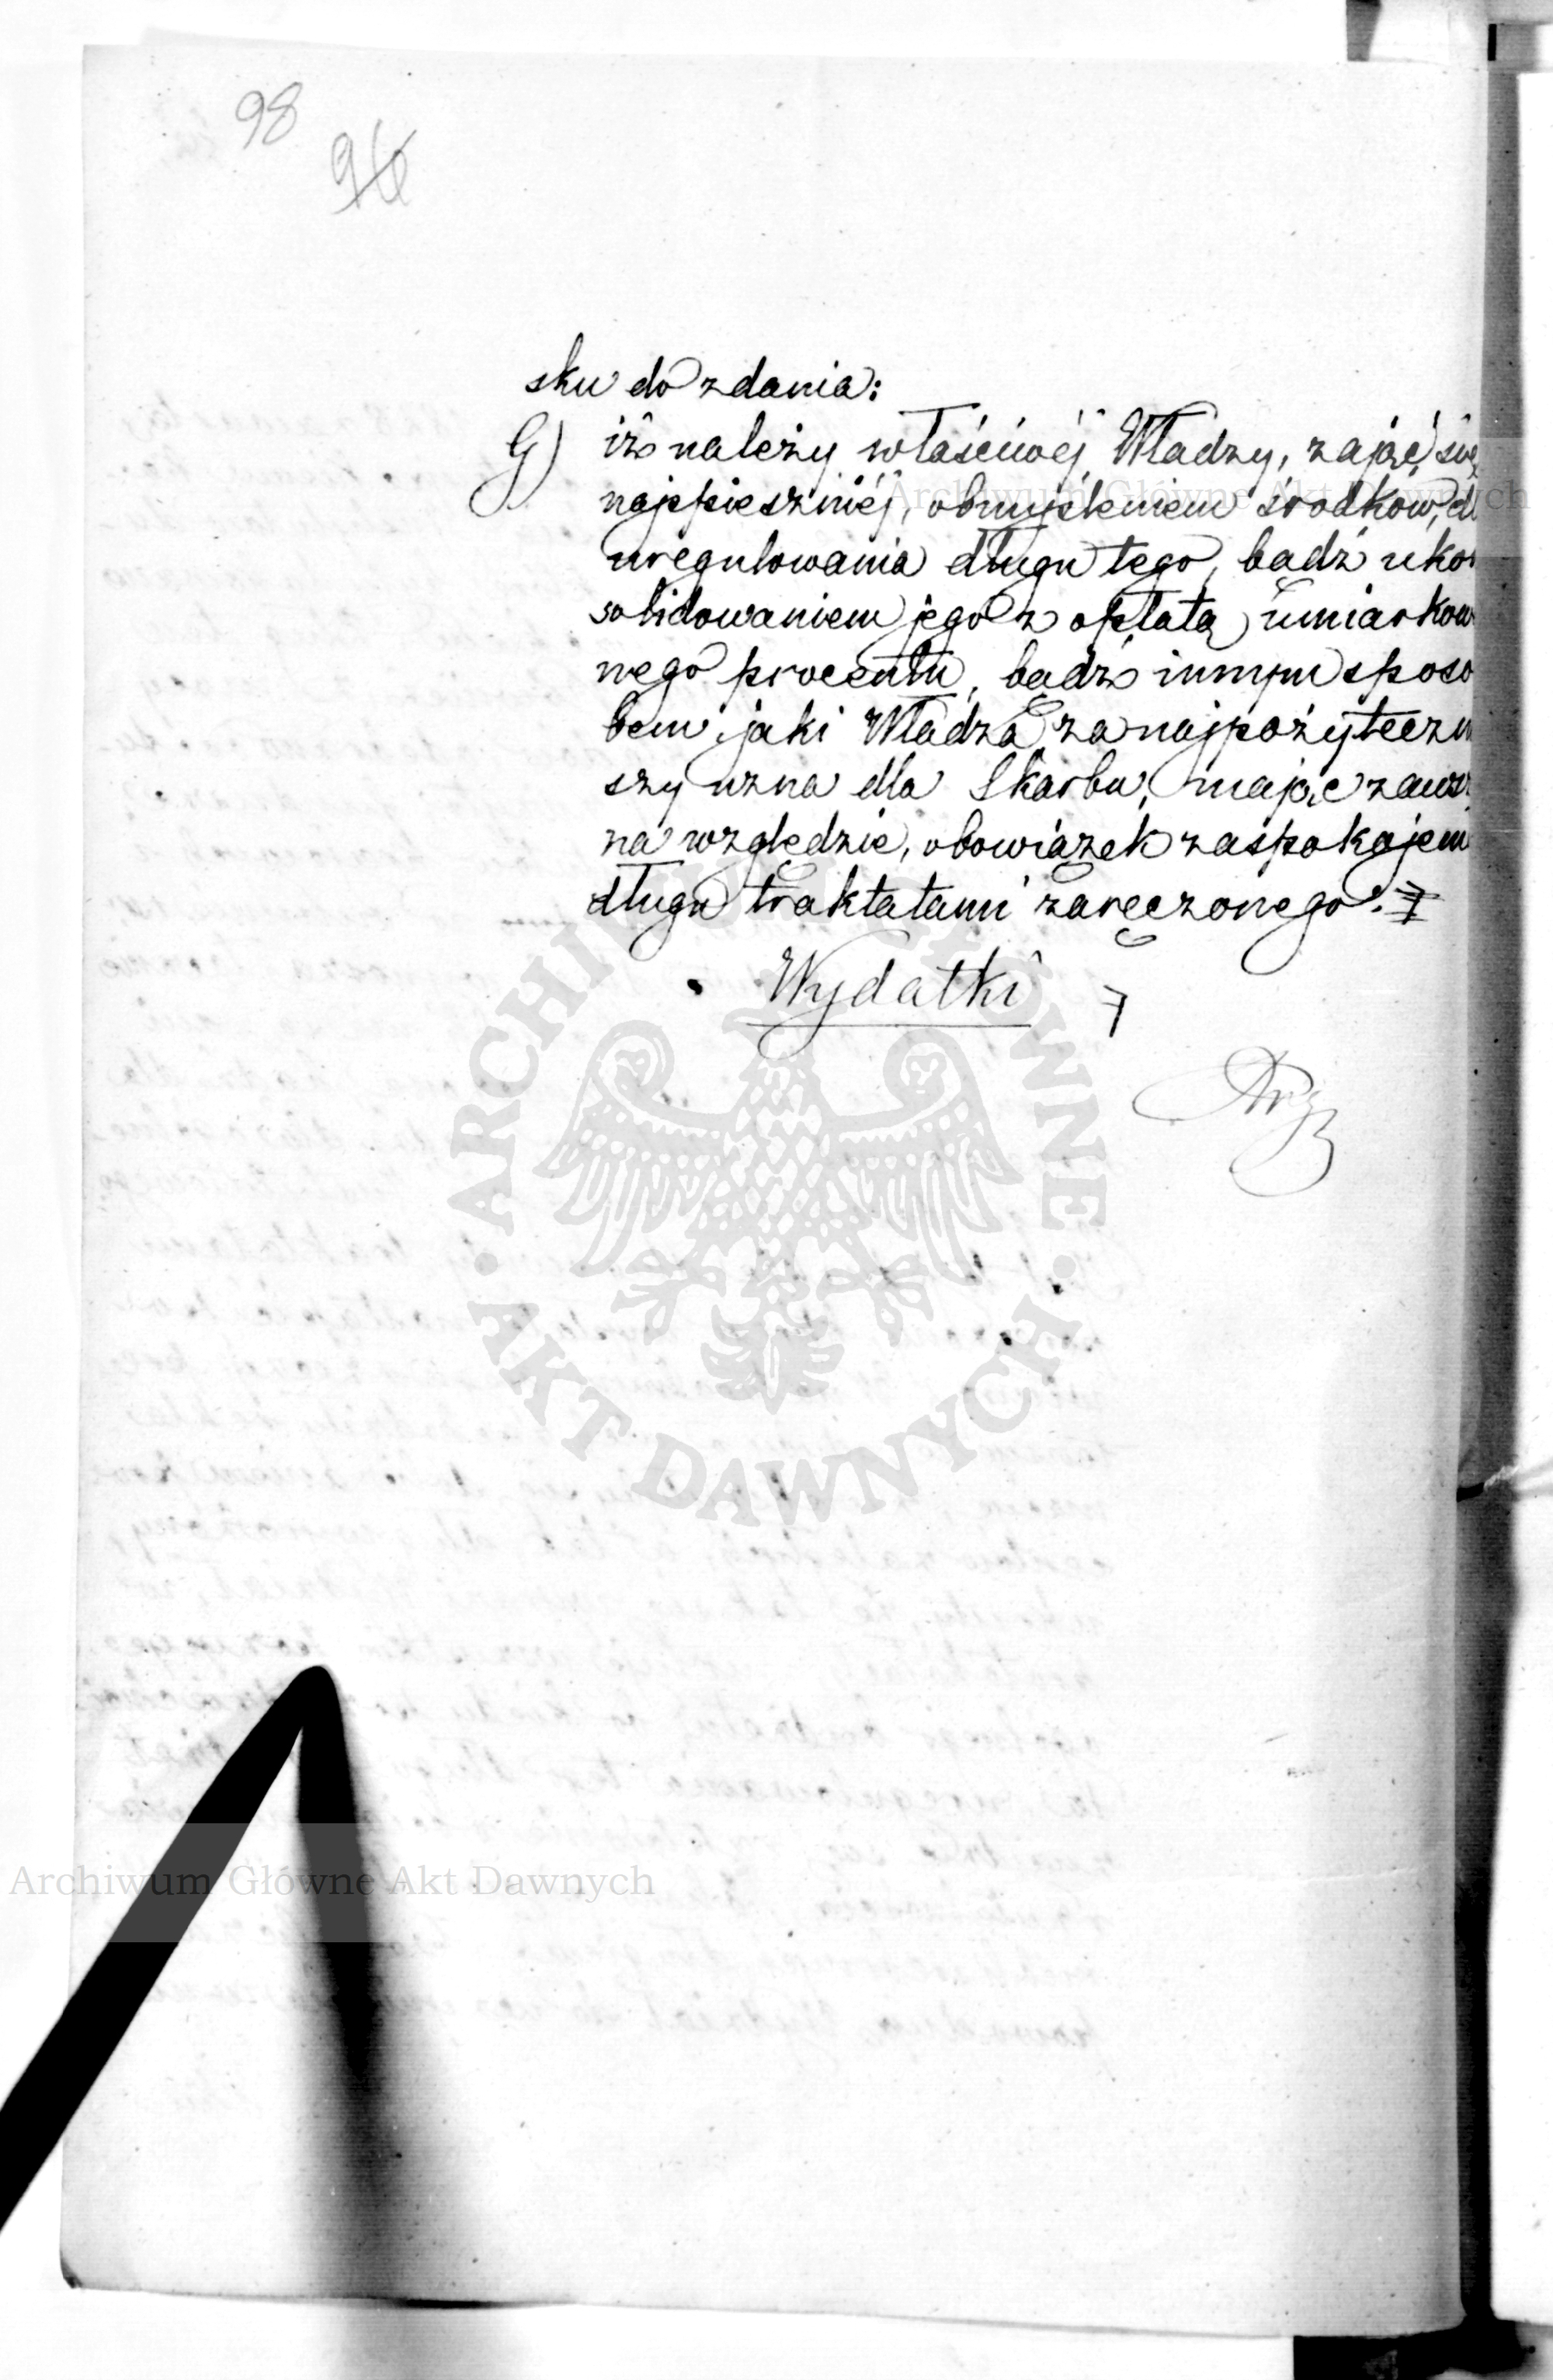 98
96
sku do zdania:
G) iż należy właściwéj Władzy, zająć się
najspieszniéj, obmyśleniem srodków, dl
uregulowania długu tego, bądź ukon
solidowaniem jego z opłatą umiarkowa
nego procentu, bądź innym sposo
bem jaki Władza za najpożyteczn
szy uzna dla Skarbu, mając zawsz
na względzie, obowiązek zaspokajeni
długu traktatami zaręczonego.
Wydatki
ARCHIWUM GŁÓWNE
AKT DAWNYCH
Archiwum Główne Akt Dawnych
Archiwum Główne Akt Dawnych